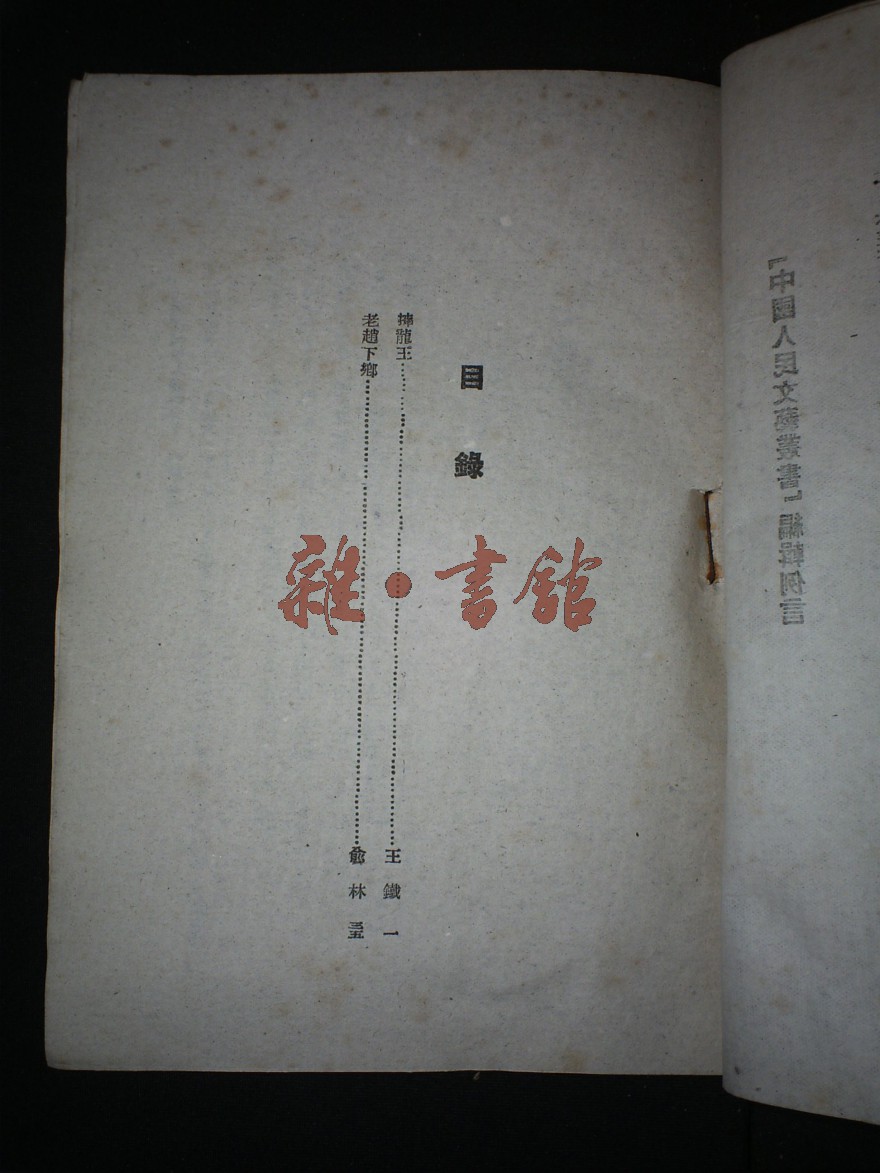 目錄
摔龍王……王鐵 一
老趙下鄉……俞林 三五
『中國人民文藝叢書』編輯例言
雜・書館